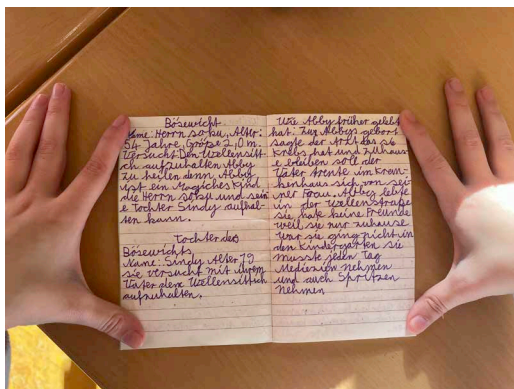 Bösewicht
Name: Herrn soku, Alter:
54 Jahre, Größe 2,0 m.
Versucht Den Wellensitt
ich aufzuhalten Abby
zu heilen denn Abby
ist ein Magiches Kind
die Herrn und sein
e tochter Sindy aufhal-
ten kann.
tochter des
Bösewichts
Name: Sindy Alter 19
sie versucht mit ihrem
Vater dem Wellensittich
aufzuhalten.
Wie Abby früher gelebt
hat: Zur Abbys geburt
sagte der Arzt das sie
Krebs hat und Zuhaus
e bleiben soll der
Vater trente im Kran-
henhaus sich von sei-
ner Frau. Abby lebte
in der Wellenstraße
sie hat keine Freunde
weil sie nur zuhause
war sie ging nicht in
den Kindergarten sie
musste jeden Tag
Mediezien nehmen
und auch Spritzen
nehmen